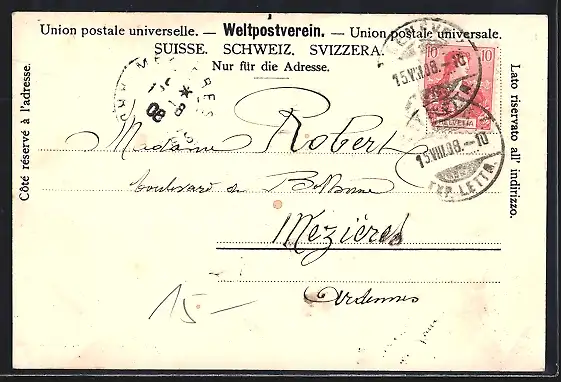 Union postale universelle. — Weltpostverein. — Union postale universale.
SUISSE. SCHWEIZ. SVIZZERA.
Nur für die Adresse.
Côté réservé à l'adresse.
Lato riservato all' indirizzo.
10 10
HELVETIA
15.VIII.08.–10
EXP. LETTR.
15.VIII.08.–10
EXP. LETTR.
08
Madame Robert
boulevard de
Mezières
Ardennes
15—